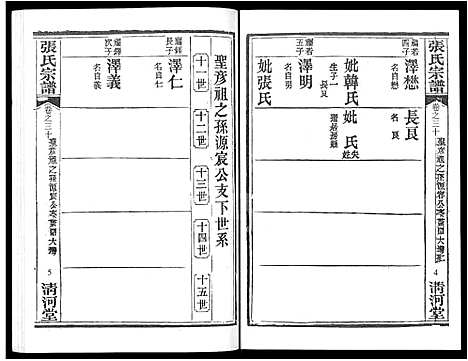 張氏宗譜
卷之三十
清河堂
4
四子
澤懋
名自懋
長艮
妣韓氏
生子一
長艮
妣氏
失姓
澤明
名自男
妣張氏
聖彥祖之孫源宸公支下世系
十一世
十二世
十三世
十四世
十五世
長子
澤仁
名自仁
次子
澤義
名自義
張氏宗譜
卷之三十
5
清河堂